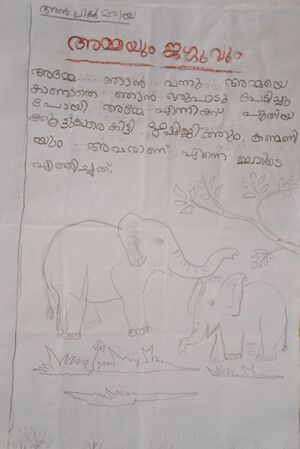 അൻ
അമ്മയും ജഗ്ഗുവും
അമ്മേ ഞാൻ വന്നു അമ്മയെ
കാണാതെ ഞാൻ ഒരുപാടു പേടിച്ചു
പോയി അമ്മേ എനിക്ക് പുതിയ
കൂട്ടുകാരെ കിട്ടി കിങ്ങിണിയും, കണ്മണി
യും അവരാണ് എന്നെ ഇവിടെ
എത്തിച്ചത്.